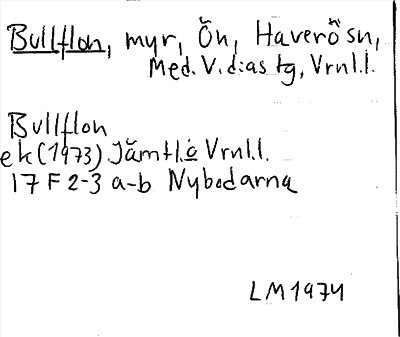 Bullflon, myr, Ön, Haverö sn,
Med. V. d:as tg, Vrnl.l.
Bullflon
ek (1973) Jämtl. o Vrnl.l.
17 F 2-3 a-b Nybodarna
LM 1974